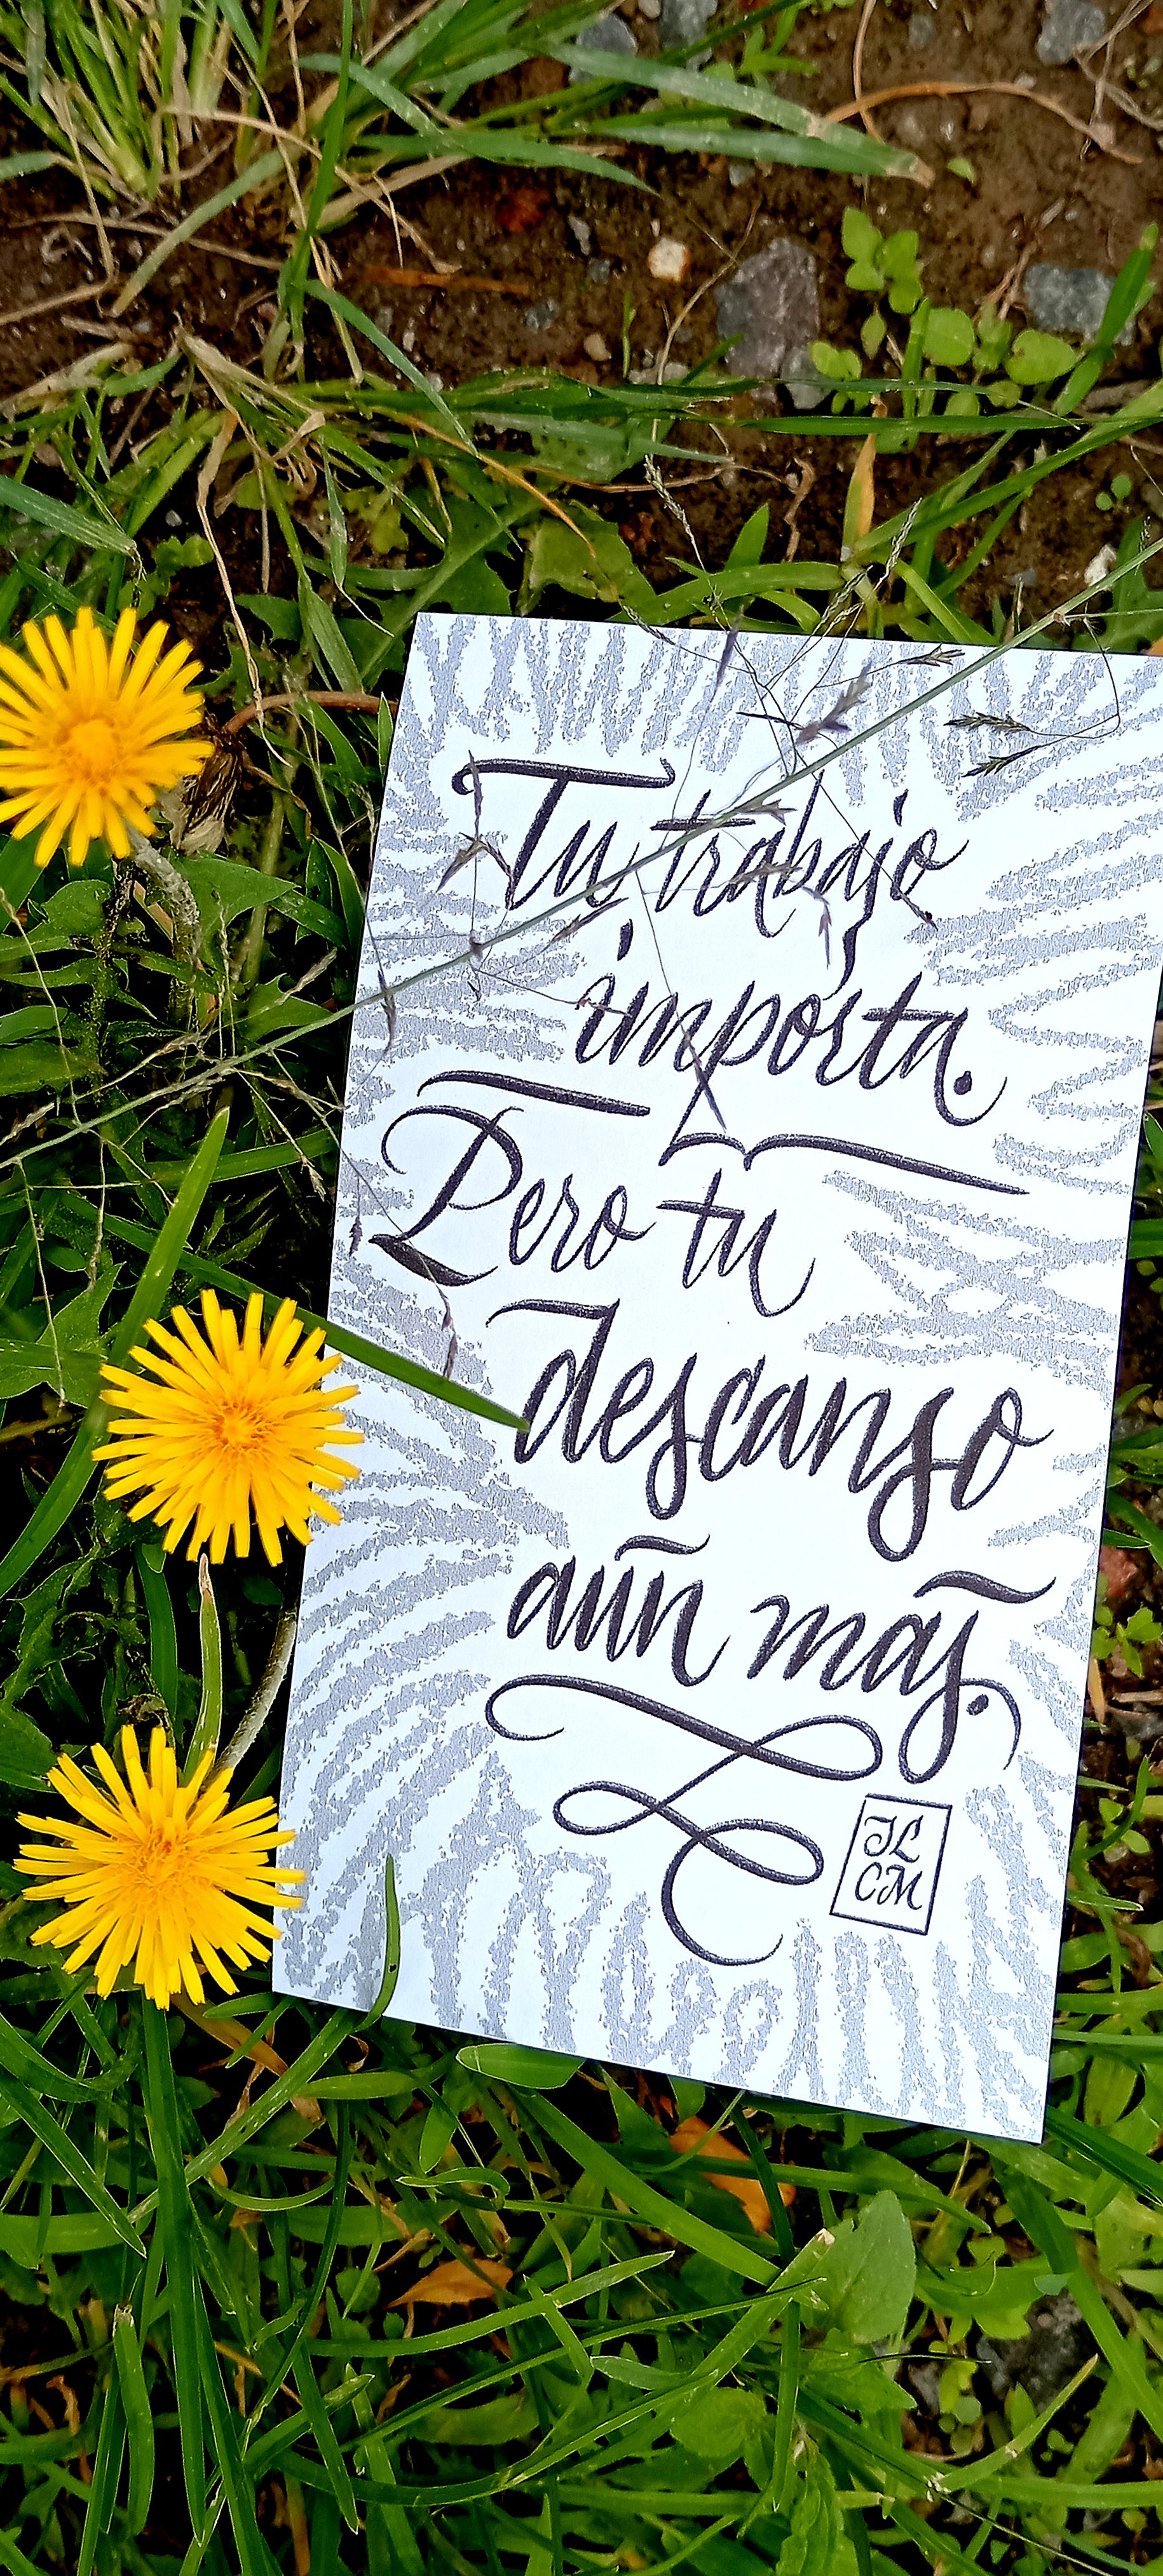 Tu trabajo
importa.
Pero tu
descanso
aún más.
JL
CM